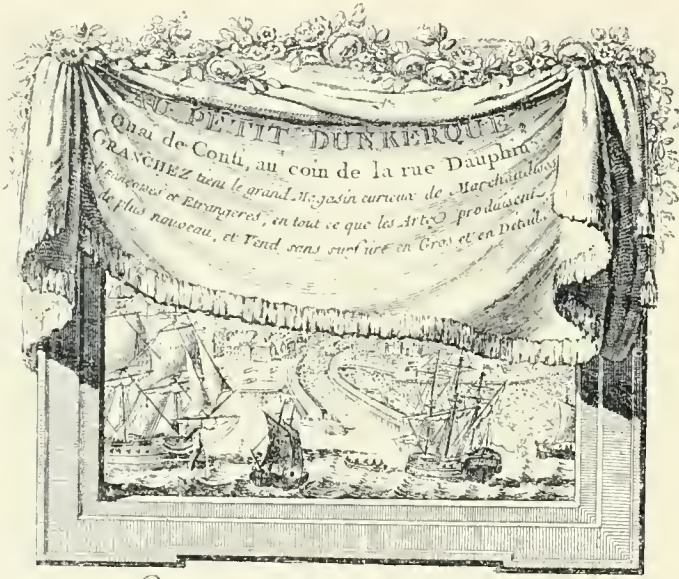 AU PETIT DUNKERQUE,
Quai de Conti, au coin de la rue Dauphine
GRANCHEZ tient le grand Magasin curieux de Marchandises
Françoises et Etrangeres, en tout ce que les Arts produisent
de plus nouveau, et Vend sans surfaire en Gros et en Détail